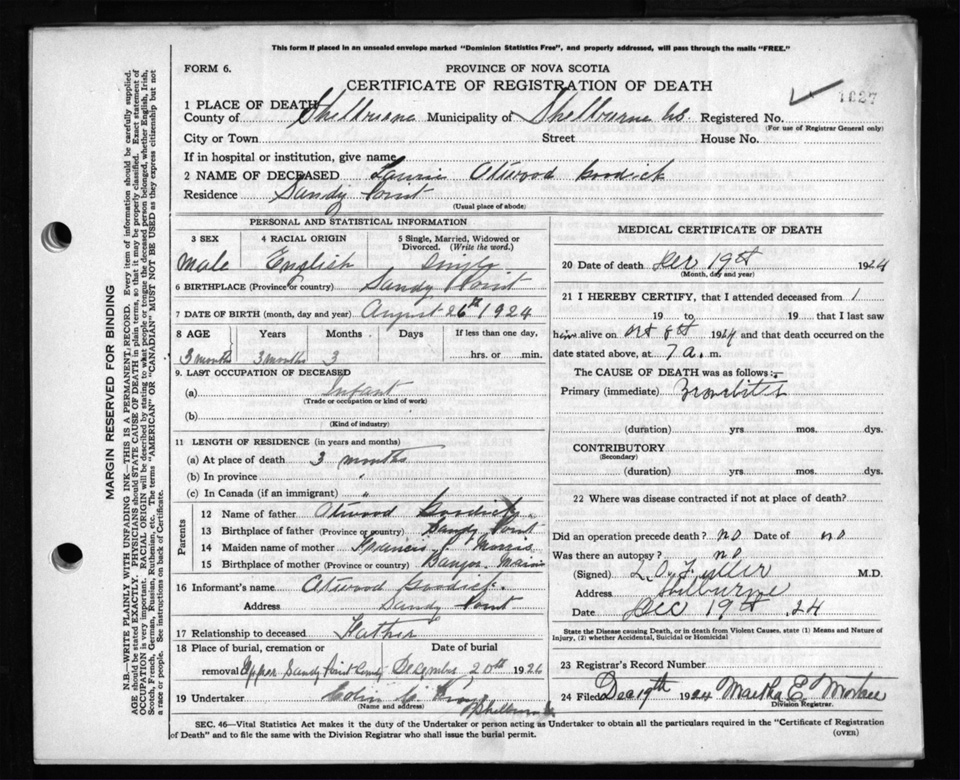 This form if placed in an unsealed envelope marked "Dominion Statistics Free", and properly addressed, will pass through the mails "FREE."
FORM 6.
PROVINCE OF NOVA SCOTIA
CERTIFICATE OF REGISTRATION OF DEATH
1027
1 PLACE OF DEATH
County of Shelburne Municipality of Shelburne Co. Registered No.
(For use of Registrar General only)
City or Town Street House No.
If in hospital or institution, give name
2 NAME OF DECEASED Laurie Atwood Goodick
Residence Sandy Point
(Usual place of abode)
PERSONAL AND STATISTICAL INFORMATION
3 SEX 4 RACIAL ORIGIN 5 Single, Married, Widowed or Divorced. (Write the word.)
Male English Single
6 BIRTHPLACE (Province or country) Sandy Point
7 DATE OF BIRTH (month, day and year) August 26th 1924
8 AGE Years Months Days If less than one day,
3 months 3 months 3 hrs. or min.
9. LAST OCCUPATION OF DECEASED
(a) Infant
(Trade or occupation or kind of work)
(b)
(Kind of industry)
11 LENGTH OF RESIDENCE (in years and months)
(a) At place of death 3 months
(b) In province "
(c) In Canada (if an immigrant) "
Parents
12 Name of father Atwood Goodick
13 Birthplace of father (Province or country) Sandy Point
14 Maiden name of mother Morris
15 Birthplace of mother (Province or country) Bangor Maine
16 Informant's name Atwood Goodick
Address Sandy Point
17 Relationship to deceased Father
18 Place of burial, cremation or Date of burial
removal Upper Sandy Point December 20th 192
19 Undertaker Colin
(Name and address)
Shelburne
MEDICAL CERTIFICATE OF DEATH
20 Date of death Dec 19th 1924
(Month, day and year)
21 I HEREBY CERTIFY, that I attended deceased from
19 to 19 that I last saw
him alive on Oct 8th 1924 and that death occurred on the
date stated above, at 7 a. m.
The CAUSE OF DEATH was as follows:—
Primary (immediate) Bronchitis
(duration) yrs mos. dys.
CONTRIBUTORY
(Secondary)
(duration) yrs. mos. dys.
22 Where was disease contracted if not at place of death?
Did an operation precede death? no Date of no
Was there an autopsy? no
(Signed) L.O. Fuller M.D.
Address Shelburne
Date Dec 19th 24
State the Disease causing Death, or in death from Violent Causes, state (1) Means and Nature of
Injury, (2) whether Accidental, Suicidal or Homicidal
23 Registrar's Record Number
24 Filed Dec 19th 1924 Martha E.
Division Registrar.
SEC. 46—Vital Statistics Act makes it the duty of the Undertaker or person acting as Undertaker to obtain all the particulars required in the "Certificate of Registration
of Death" and to file the same with the Division Registrar who shall issue the burial permit.
(OVER)
MARGIN RESERVED FOR BINDING
N.B.—WRITE PLAINLY WITH UNFADING INK—THIS IS A PERMANENT RECORD. Every item of information should be carefully supplied.
AGE should be stated EXACTLY. PHYSICIANS should STATE CAUSE OF DEATH in plain terms, so that it may be properly classified. Exact statement of
OCCUPATION is very important. RACIAL ORIGIN will be described by stating to what people or tongue the deceased person belonged, whether English, Irish,
Scotch, French, German, Russian, Ruthenian, etc. The terms "AMERICAN" OR "CANADIAN" MUST NOT BE USED as they express citizenship but not
a race or people. See instructions on back of Certificate.